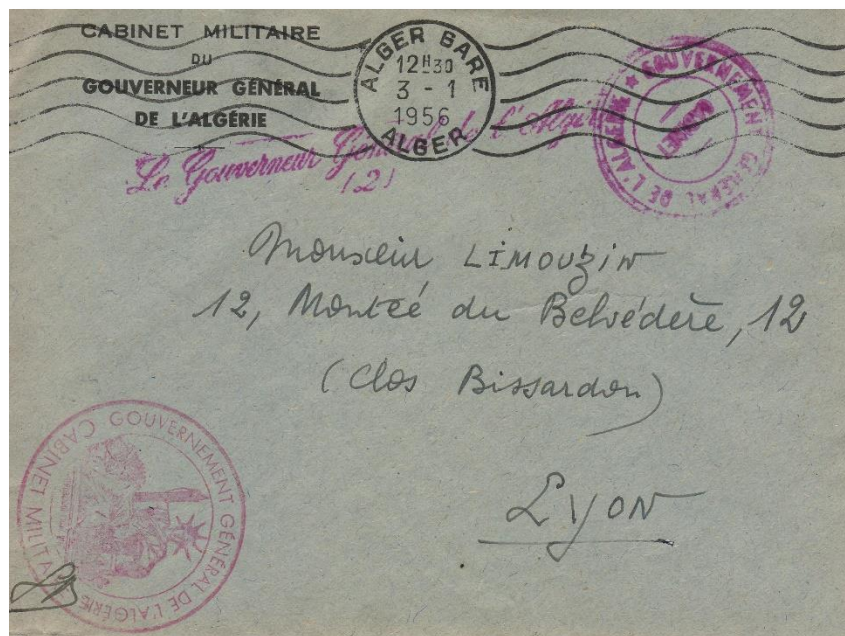 CABINET MILITAIRE
DU
GOUVERNEUR GÉNÉRAL
DE L'ALGÉRIE
ALGER GARE
12H30
3 - 1
1956
ALGER
Le Gouverneur Général de l'Algérie
(2)
★ GOUVERNEMENT GÉNÉRAL DE L'ALGÉRIE
CABINET
Monsieur LIMOUZIN
12, Montée du Belvédère, 12
(Clos Bissardon)
Lyon
GOUVERNEMENT GÉNÉRAL DE L'ALGÉRIE
CABINET MILITA